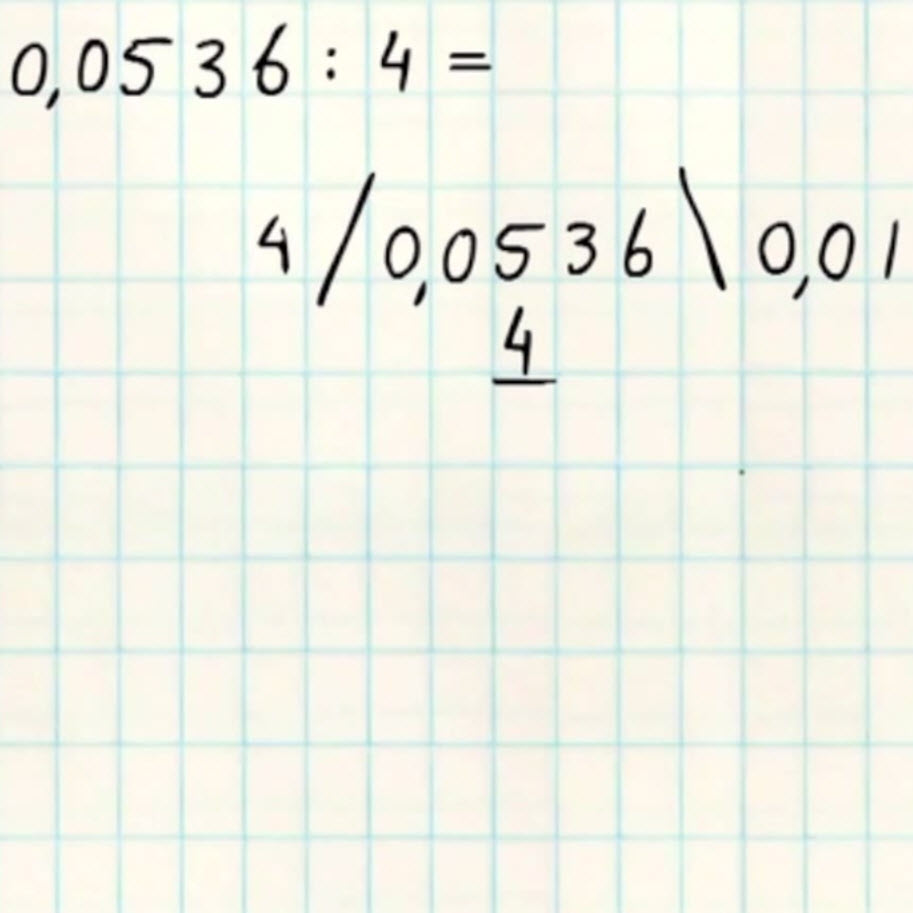 0,0536 : 4 =
4 / 0,0536 \ 0,01
4